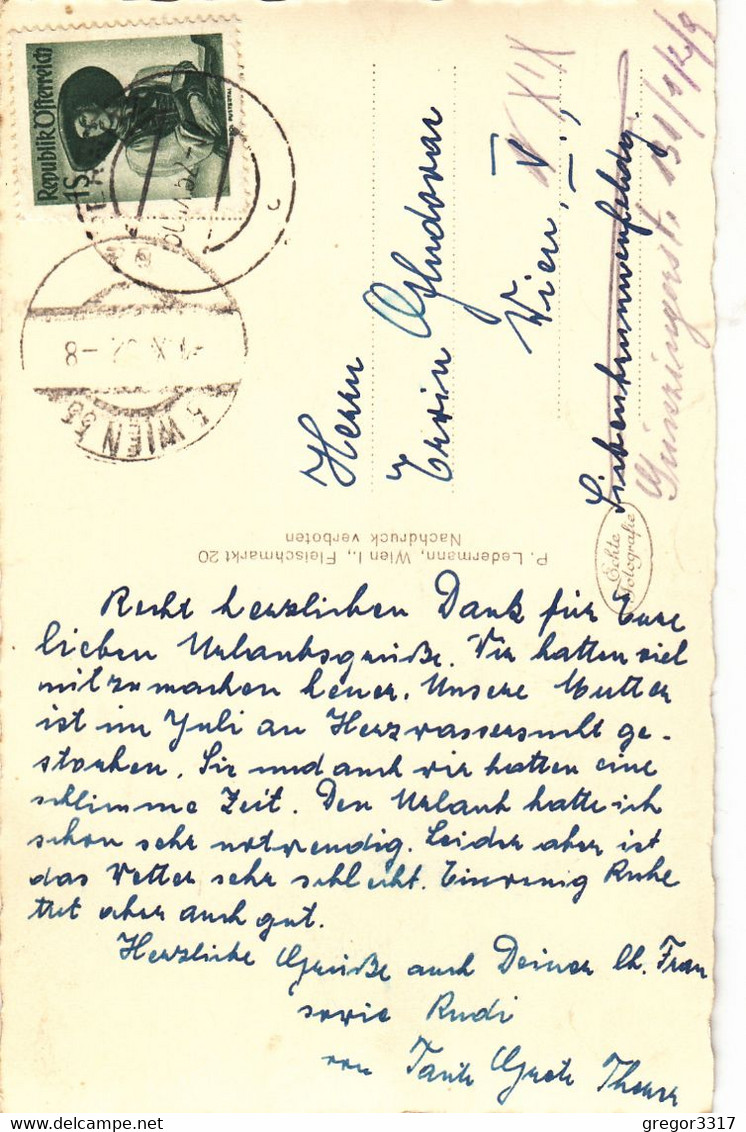 Republik Österreich
1S
PUSTERTAL
5 WIEN 55
Herrn
Erwin
Wien, V.,
XIX
Siebenbrunnenfeldg.
Grinzingerst. 131/1/2/9
Echte
Fotografie
P. Ledermann, Wien I., Fleischmarkt 20
Nachdruck verboten
Recht herzlichen Dank für Eure
lieben Urlaubsgrüße. Wir hatten viel
mitzumachen heuer. Unsere Mutter
ist im Juli an Herzwassersucht ge-
storben. Sie und auch wir hatten eine
schlimme Zeit. Den Urlaub hatte ich
schon sehr notwendig. Leider aber ist
das Wetter sehr schlecht. Ein wenig Ruhe
tut aber auch gut.
Herzliche Grüße auch Deiner lb. Frau
sowie Rudi
von Tante Grete
gregor3317